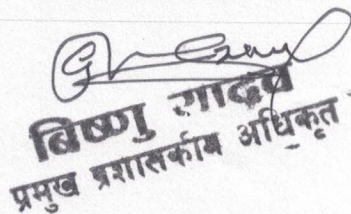 बिष्णु यादव
प्रमुख प्रशासकीय अधिकृत